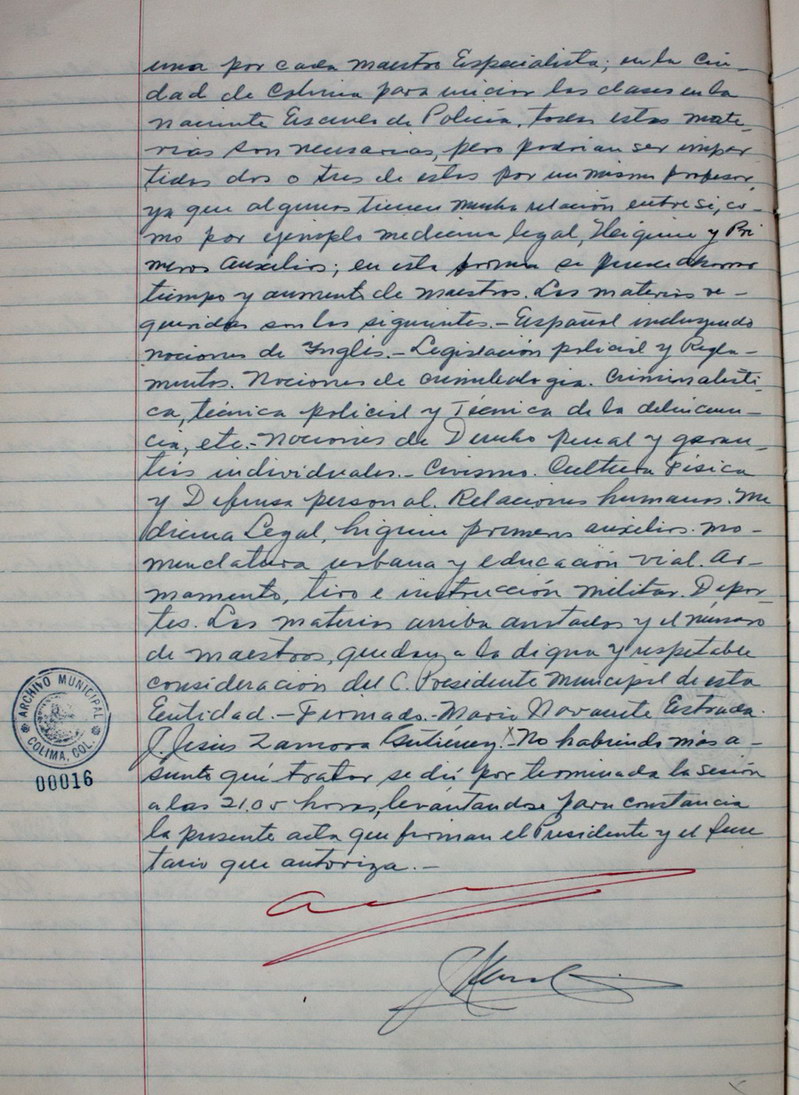 una por cada maestro Especialista; en la Ciu-
dad de Colima para iniciar las clases en la
naciente Escuela de Policía, todas estas mate-
rias son necesarias, pero podrían ser impar
tidas dos o tres de estas por un mismo profesor,
ya que algunos tienen mucha relación entre si, co-
mo por ejemplo medicina legal, Higiene y Pri
meros Auxilios; en esta forma se puede ahorrar
tiempo y aumento de maestros. Las materias re-
queridas son las siguientes.- Español incluyendo
nociones de Inglés.- Legislación policial y Regla-
mentos. Nociones de criminología. Criminalísti-
ca, técnica policial y Técnica de la delincuen-
cia, etc.- Nociones de Derecho penal y garan-
tías individuales.- Civismo. Cultura Física
y Defensa personal. Relaciones humanas. Me
dicina Legal, higiene primeros auxilios. No-
menclatura urbana y educación vial. Ar-
mamento, tiro e instrucción militar. Depor-
tes. Las materias arriba anotadas y el número
de maestros, quedan a la digna y respetable
consideración del C. Presidente Municipal de esta
Entidad.- Firmado. Mario Navarrete Estrada.
J. Jesús Zamora Gutiérrez.- No habiendo más a-
sunto qué tratar se dió por terminada la sesión
a las 21.05 horas, levantandose para constancia
la presente acta que firman el Presidente y el Secre
tario que autoriza.-
ARCHIVO MUNICIPAL
COLIMA, COL.
00016